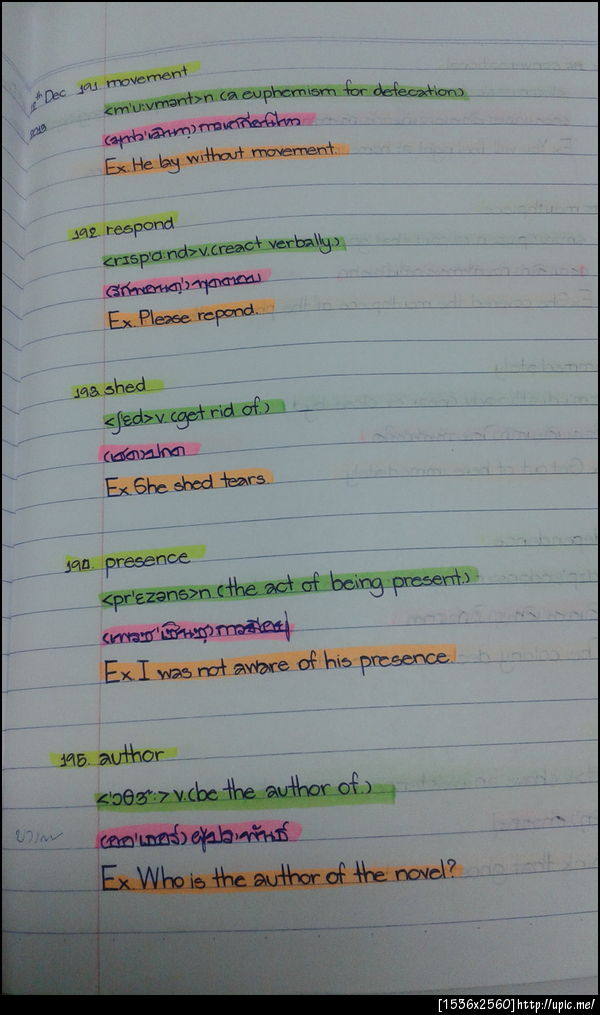 12th Dec 191 movement
2013
<m'u:vmənt>n (a euphemism for defecation)
Ex. He lay without movement.
192 respond
<rɪsp'ɑ:nd>v.(react verbally.)
Ex. Please repond.
193. shed
<ʃ'ed>v.(get rid of.)
(เชด)
Ex She shed tears.
194. presence
<pr'ɛzəns>n.(the act of being present.)
Ex. I was not aware of his presence.
195. author
<'ɔθɜ:>v.(be the author of.)
(ออ'เธอร์) ผู้ประพันธ์
Ex Who is the author of the novel?
[1536x2560]http://upic.me/